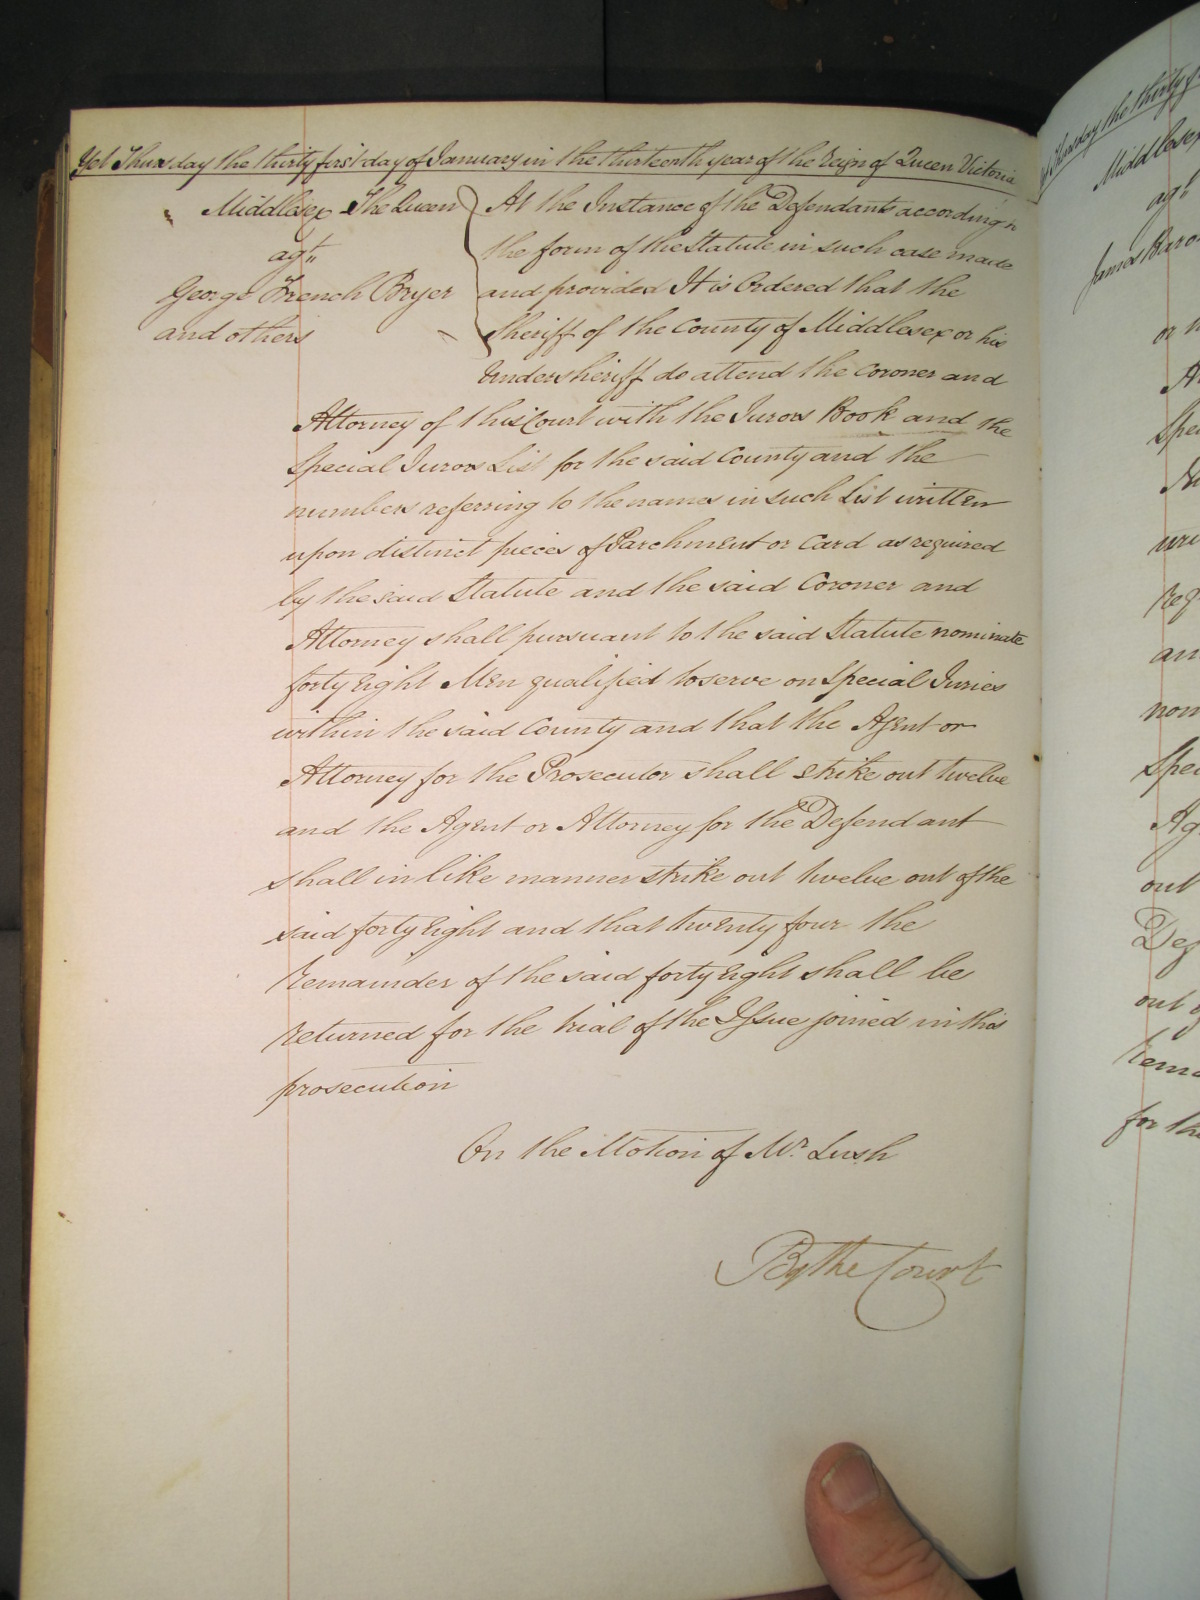 Yet Thursday the thirty first day of January in the thirteenth year of the Reign of Queen Victoria
Middlesex The Queen
agt
George French Bryer
and others
At the Instance of the Defendants according to
the form of the Statute in such case made
and provided It is Ordered that the
Sheriff of the County of Middlesex or his
Undersheriff do attend the Coroner and
Attorney of this Court with the Jurors Book and the
Special Jurors List for the said County and the
numbers referring to the names in such List written
upon distinct pieces of Parchment or Card as required
by the said Statute and the said Coroner and
Attorney shall pursuant to the said Statute nominate
forty eight Men qualified to serve on Special Juries
within the said County and that the Agent or
Attorney for the Prosecutor shall strike out twelve
and the Agent or Attorney for the Defendant
shall in like manner strike out twelve out of the
said forty eight and that twenty four the
remainder of the said forty eight shall be
returned for the trial of the Issue joined in this
prosecution
On the Motion of Mr. Lush
By the Court
Thursday the thirty
Middlesex
agt
James
or
out
out
for the